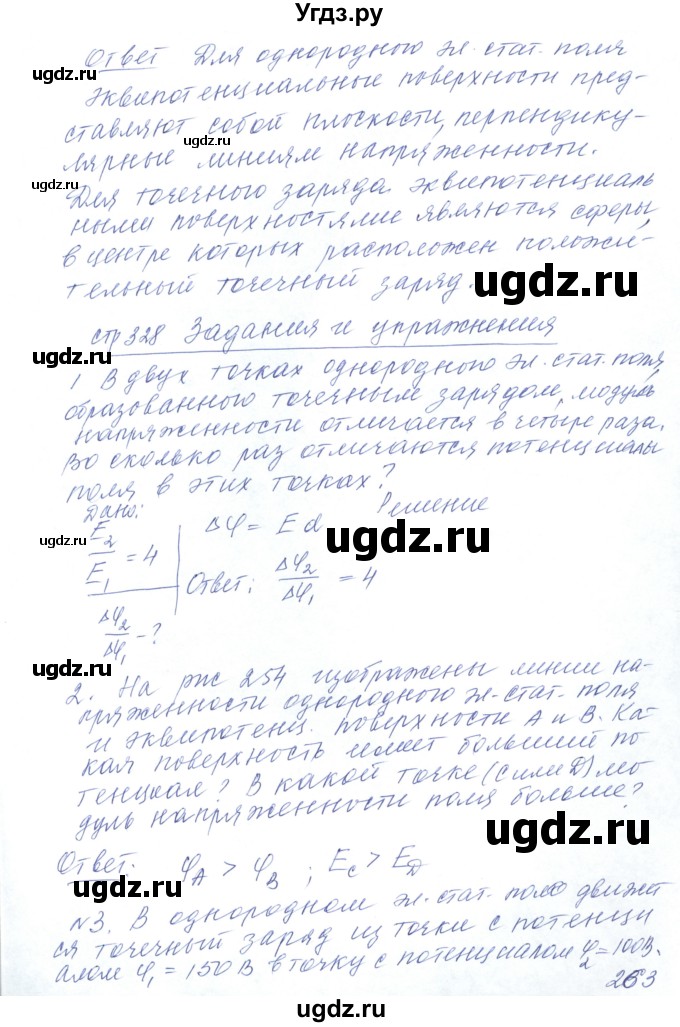 Угдз.ру
Ответ Для однородного эл. стат. поля
эквипотенциальные поверхности пред-
ставляют собой плоскости, перпендику-
лярные линиям напряженности.
Для точечного заряда эквипотенциаль
ными поверхностями являются сферы,
в центре которых расположен положи-
тельный точечный заряд.
стр 328 Задания и упражнения
1 В двух точках однородного эл. стат. поля,
образованного точечным зарядом, модуль
напряженности отличается в четыре раза.
Во сколько раз отличаются потенциалы
поля в этих точках?
Дано: Решение
E₂/E₁ = 4
Δφ = Ed
Δφ₂/Δφ₁ - ?
Ответ: Δφ₂/Δφ₁ = 4
2. На рис 254 изображены линии на-
пряженности однородного эл-стат. поля
и эквипотенц. поверхности А и В. Ка-
кая поверхность имеет больший по
тенциал? В какой точке (С или D) мо-
дуль напряженности поля больше?
Ответ: φ_A > φ_B ; E_C > E_D
№3. В однородном эл-стат. поле движет
ся точечный заряд из точки с потенци
алом φ₁ = 150 В в точку с потенциалом φ₂ = 100В.
263
ugdz.ru
ugdz.ru
ugdz.ru
ugdz.ru
ugdz.ru
ugdz.ru
ugdz.ru
ugdz.ru
ugdz.ru